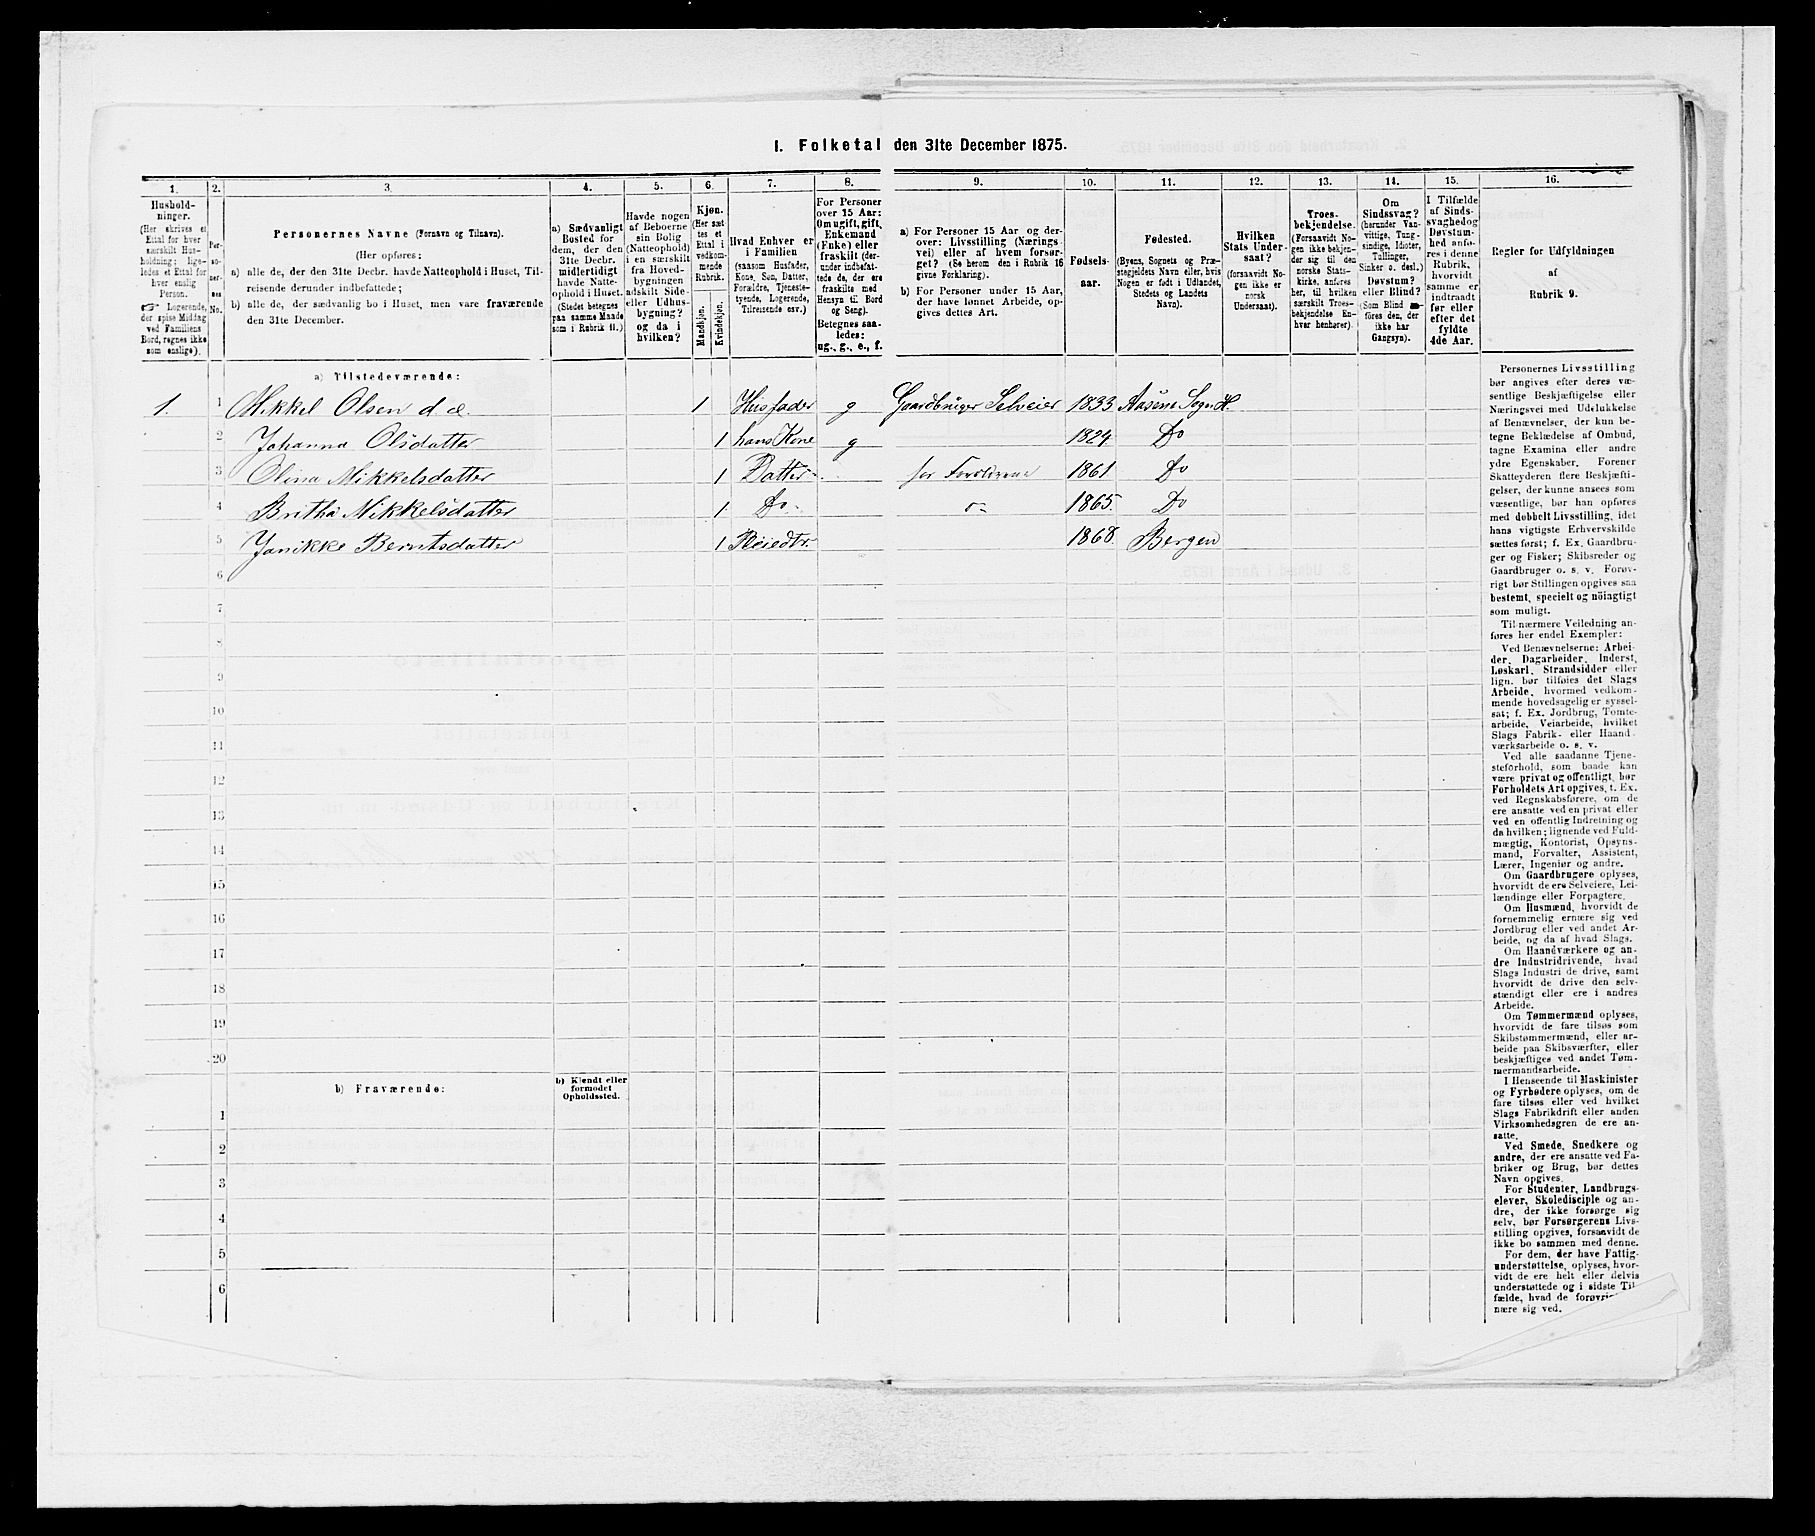 1. Folketal den 31te December 1875.
1. 2. 3. 4. 5. 6. 7. 8. 9. 10. 11. 12. 13. 14. 15. 16.
Hushold-
ninger.
(Her skrives et
Ettal for hver
særskilt Hus-
holdning; lige-
ledes et Ettal for
hver enslig
Person.
☞ Logerende,
der spise Middag
ved Familiens
Bord, regnes ikke
som enslige).
Per-
so-
ner-
nes
No.
Personernes Navne (Fornavn og Tilnavn).
(Her opføres:
a) alle de, der den 31te Decbr. havde Natteophold i Huset, Til-
reisende derunder indbefattede;
b) alle de, der sædvanlig bo i Huset, men vare fraværende
den 31te December.
a) Sædvanligt
Bosted for
dem, der den
31te Decbr.
midlertidigt
havde Natte-
ophold i Huset.
(Stedet betegnes
paa samme Maade
som i Rubrik 11.)
Havde nogen
af Beboerne
sin Bolig
(Natteophold)
i en særskilt
fra Hoved-
bygningen
adskilt Side-
eller Udhus-
bygning?
og da i
hvilken?
Kjøn.
(Her sæt-
tes et
Ettal i
vedkom-
mende
Rubrik.
Mandkjøn.
Kvindekjøn.
Hvad Enhver er
i Familien
(saasom Husfader,
Kone, Søn, Datter,
Forældre, Tjeneste-
tyende, Logerende,
Tilreisende osv.)
For Personer
over 15 Aar:
Om ugift, gift,
Enkemand
(Enke) eller
fraskilt (der-
under indbefat-
tede da, der ere
fraskilte med
Hensyn til Bord
og Seng).
Betegnes saa-
ledes:
ug., g., e., f.
a) For Personer 15 Aar og der-
over: Livsstilling (Nærings-
vei) eller af hvem forsør-
get? (Se herom den i Rubrik 16
givne Forklaring).
b) For Personer under 15 Aar,
der have lønnet Arbeide, op-
gives dettes Art.
Fødsels-
aar.
Fødested.
(Byens, Sognets og Præ-
stegjeldets Navn eller, hvis
Nogen er født i Udlandet,
Stedets og Landets
Navn).
Hvilken
Stats Under-
saat?
(forsaavidt No-
gen ikke er
norsk
Undersaat).
Troes-
bekjendelse.
(Forsaavidt No-
gen ikke bekjen-
der sig til den
norske Stats-
kirke, anføres
her, til hvilken
særskilt Troes-
bekjendelse En-
hver henhører).
Om
Sindssvag?
(herunder Van-
vittige, Tung-
sindige, Idioter,
Tullinger,
Sinker o. desl.)
Døvstum?
eller Blind?
(Som Blind
føres den, der
ikke har
Gangsyn).
I Tilfælde
af Sinds-
svaghed og
Døvstum-
hed anfø-
res i denne
Rubrik,
hvorvidt
samme er
indtraadt
før eller
efter det
fyldte
4de Aar.
Regler for Udfyldningen
af
Rubrik 9.
a) Tilstedeværende:
1. 1 Mikkel Olsen 1 Husfader g Gaardbruger Selveier 1833 Aasene Sogn H.
2 Johanna Olsdatter 1 hans Kone g 1824 Do
3 Olina Mikkelsdatter 1 Datter 1861 Do
4 Britha Mikkelsdatter 1 Do 1865. Do
5 Janikke Berntsdatter 1 Pleiedtr. 1868 Bergen
6
7
8
9
10
11
12
13
14
15
16
17
18
19
20
b) Fraværende:
b) Kjendt eller
formodet
Opholdssted.
1
2
3
4
5
6
Personernes Livsstilling
bør angives efter deres væ-
sentlige Beskjæftigelse eller
Næringsvei med Udelukkelse
af Benævnelser, der kun be-
tegne Beklædelse af Ombud,
tagne Examina eller andre
ydre Egenskaber. Forener
Skatteyderen flere Beskjæfti-
gelser, der kunne ansees som
væsentlige, bør han opføres
med dobbelt Livsstilling, idet
hans vigtigste Erhvervskilde
sættes først; f. Ex. Gaardbru-
ger og Fisker; Skibsreder og
Gaardbruger o. s. v. Forøv-
rigt bør Stillingen opgives saa
bestemt, specielt og nöiagtigt
som muligt.
Til nærmere Veiledning an-
føres her endel Exempler:
Ved Benævnelserne: Arbei-
der, Dagarbeider, Inderst,
Løskarl, Strandsidder eller
lign. bør tilføies det Slags
Arbeide, hvormed vedkom-
mende hovedsagelig er syssel-
sat; f. Ex. Jordbrug, Tomte-
arbeide, Veiarbeide, hvilket
Slags Fabrik- eller Haand-
værksarbeide o. s. v.
Ved alle saadanne Tjene-
steforhold, som baade kan
være privat og offentligt, bør
Forholdets Art opgives, t. Ex.
ved Regnskabsførere, om de
ere ansatte ved en privat eller
ved en offentlig Indretning og
da hvilken; lignende ved Fuld-
mægtig, Kontorist, Opsyns-
mand, Forvalter, Assistent,
Lærer, Ingeniør og andre.
Om Gaardbrugere oplyses,
hvorvidt de ere Selveiere, Lei-
lændinge eller Forpagtere.
Om Husmænd, hvorvidt de
fornemmelig ernære sig ved
Jordbrug eller ved andet Ar-
beide, og da af hvad Slags.
Om Haandværkere og an-
dre Industridrivende, hvad
Slags Industri de drive, samt
hvorvidt de drive den selv-
stændigt eller ere i andres
Arbeide.
Om Tømmermænd oplyses,
hvorvidt de fare tilsøs som
Skibstømmermænd, eller ar-
beide paa Skibsværfter, eller
beskjæftiges ved andet Tøm-
mermandsarbeide.
I Henseende til Maskinister
og Fyrbødere oplyses, om de
fare tilsøs eller ved hvilket
Slags Fabrikdrift eller anden
Virksomhedsgren de ere an-
satte.
Ved Smede, Snedkere og
andre, der ere ansatte ved Fa-
briker og Brug, bør dettes
Navn opgives.
For Studenter, Landbrugs-
elever, Skoledisciple og an-
dre, der ikke forsørge sig
selv, bør Forsørgerens Livs-
stilling opgives, forsaavidt de
ikke bo sammen med denne.
For dem, der have Fattig-
understøttelse, oplyses, hvor-
vidt de ere helt eller delvis
understøttede og i sidste Til-
fælde, hvad de
nære sig ved.